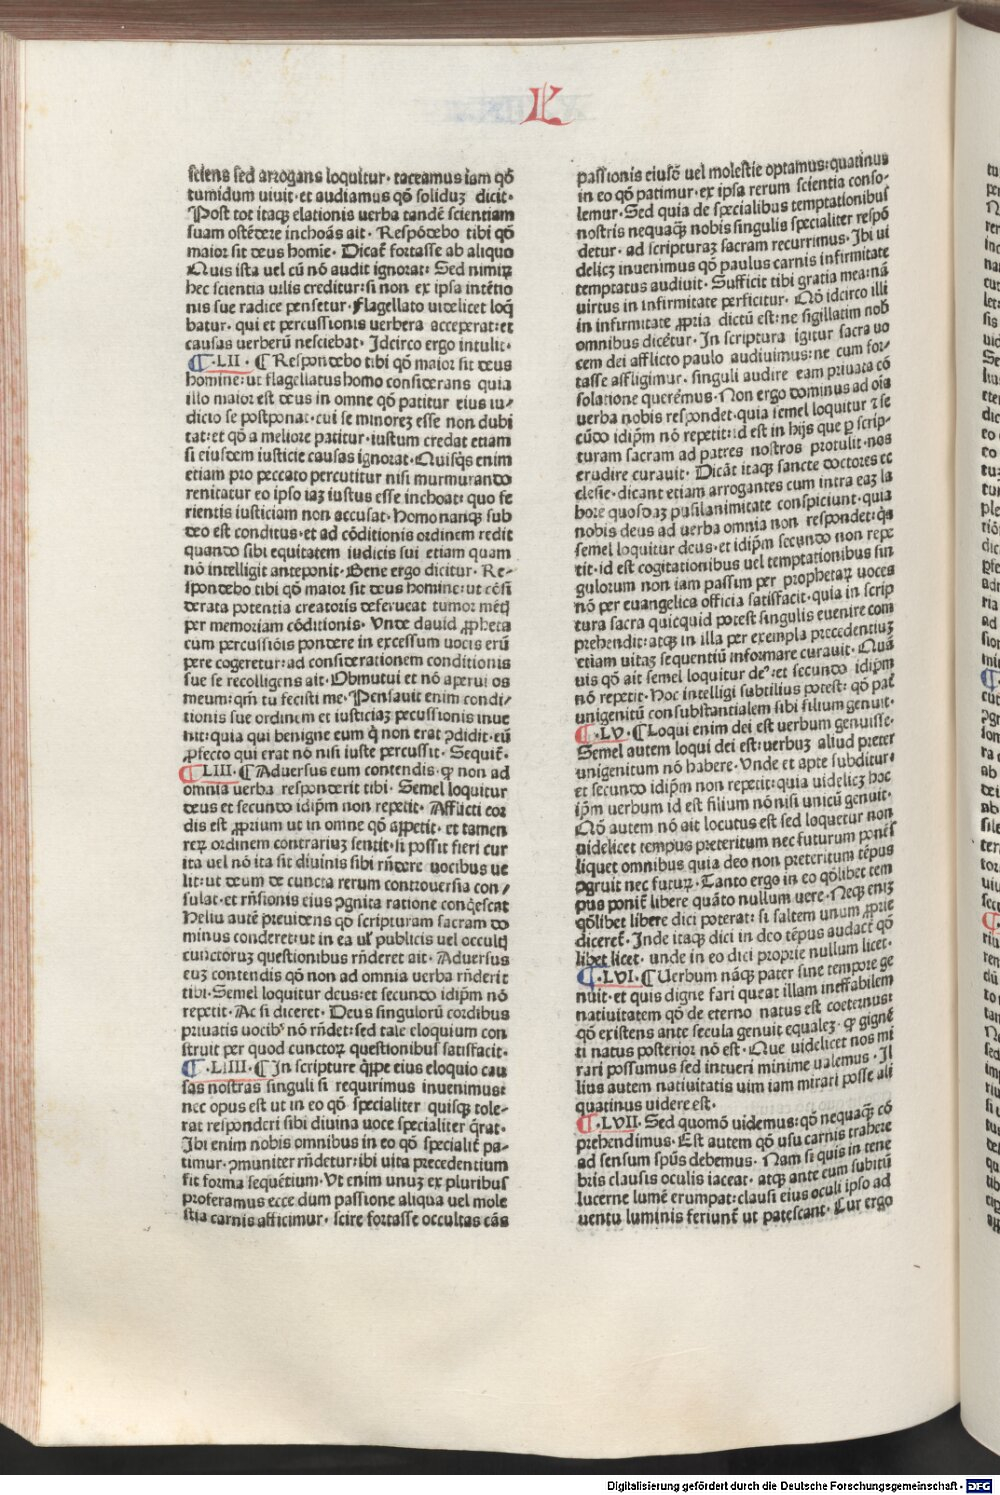 L
sciens sed arrogans loquitur· taceamus iam qō
tumidum uiuit· et audiamus qō soliduꝫ dicit·
Post tot itaqꝫ elationis uerba tandē scientiam
suam ostēdere inchoās ait· Respōdebo tibi qō
maior sit deus homīe· Dicat̄ fortasse ab aliquo
Quis ista uel cū nō audit ignorat: Sed nimiꝝ
hec scientia uilis creditur: si non ex ipsa intētio
nis sue radice pensetur· flagellato uidelicet loq̄
batur· qui et percussionis uerbera acceperat: et
causas uerberū nesciebat· Idcirco ergo intulit·
¶·LII· ¶ Respondebo tibi qō maior sit deus
homine: ut flagellatus homo considerans quia
illo maior est deus in omne qō patitur eius iu⸗
dicio se postponat· cui se minoreꝫ esse non dubi
tat: et qō a meliore patitur· iustum credat etiam
si eiusdem iusticie causas ignorat· Quisq̄s enim
etiam pro peccato percutitur nisi murmurando
renitatur eo ipso iaꝫ iustus esse inchoat: quo fe
rientis iusticiam non accusat· homo nanqꝫ sub
deo est conditus· et ad cōditionis ordinem redit
quando sibi equitatem iudicis sui etiam quam
nō intelligit anteponit· Bene ergo dicitur· Re⸗
spondebo tibi qō maior sit deus homine: ut cōsi
derata potentia creatoris deferueat tumor mētꝭ
per memoriam cōditionis· Unde dauid ꝓpheta
cum percussiōis pondere in excessum uocis erū
pere cogeretur: ad considerationem conditionis
sue se recolligens ait· Obmutui et nō aperui os
meum: qm̄ tu fecisti me· Pensauit enim condi⸗
tionis sue ordinem et iusticiaꝫ pecussionis inue
nit: quia qui benigne eum q̄ non erat ꝯdidit· eū
ꝓfecto qui erat nō nisi iuste percussit· Sequit̄·
¶LIII· ¶ Aduersus eum contendis· ꝙ non ad
omnia uerba responderit tibi· Semel loquitur
deus et secundo idip̄m non repetit· Afflicti cor
dis est ꝓprium ut in omne qō appetit· et tamen
reꝝ ordinem contrariuꝫ sentit· si possit fieri cur
ita uel nō ita sit diuinis sibi rn̄dere uocibus ue
lit: ut deum de cuncta rerum controuersia con⸗
sulat· et rn̄sionis eius ꝯgnita ratione conq̄escat
Heliu autē preuidens qō scripturam sacram do
minus conderet: ut in ea ul̄ publicis uel occultꝭ
cunctoruꝫ questionibus rn̄deret ait· Aduersus
euꝫ contendis qō non ad omnia uerba rn̄derit
tibi· Semel loquitur deus: et secundo idip̄m nō
repetit· Ac si diceret· Deus singulorū cordibus
priuatis uocibꝰ nō rn̄det: sed tale eloquium con
struit per quod cunctoꝝ questionibus satisfacit·
¶·LIIII· ¶ In scripture q̄ppe eius eloquio cau
sas nostras singuli si requirimus inuenimus:
nec opus est ut in eo qō specialiter quisqꝫ tole⸗
rat responderi sibi diuina uoce specialiter q̄rat·
Ibi enim nobis omnibus in eo qō specialit̄ pa⸗
timur· ꝯmuniter rn̄detur: ibi uita precedentium
fit forma sequētium· Ut enim unuꝫ ex pluribus
proferamus ecce dum passione aliqua uel mole
stia carnis afficimur· scire fortasse occultas cās
passionis eiusdē uel molestie optamus: quatinus
in eo qō patimur· ex ipsa rerum scientia conso⸗
lemur· Sed quia de specialibus temptationibus
nostris nequaqꝫ nobis singulis specialiter respō
detur· ad scripturaꝫ sacram recurrimus· Ibi ui
delicꝫ inuenimus qō paulus carnis infirmitate
temptatus audiuit· Sufficit tibi gratia mea: nā
uirtus in infirmitate perficitur· Nō idcirco illi
in infirmitate ꝓpria dictū est: ne sigillatim nob
omnibus dicētur· In scriptura igitur sacra uo
cem dei afflicto paulo audiuimus: ne cum for⸗
tasse affligimur· singuli audire eam priuata cō
solatione queremus· Non ergo dominus ad oīa
uerba nobis respondet· quia semel loquitur ⁊ se
cūdo idip̄m nō repetit: id est in hijs que ꝑ scrip⸗
turam sacram ad patres nostros protulit· nos
erudire curauit· Dicāt itaqꝫ sancte doctores ec
clesie· dicant etiam arrogantes cum intra eaꝫ la
bore quosdaꝫ pusilanimitate conspiciunt· quia
nobis deus ad uerba omnia non respondet: q̄a
semel loquitur deus· et idip̄m secundo non repe
tit· id est cogitationibus uel temptationibus sin
gulorum non iam passim per prophetaꝝ uoces
nō per euangelica officia satisfacit· quia in scrip
tura sacra quicquid potest singulis euenire com
prehendit: atqꝫ in illa per exempla precedentiuꝫ
etiam uitaꝫ sequentiū informare curauit· Quā
uis qō ait semel loquitur deꝰ: et secundo idip̄m
nō repetit· hoc intelligi subtilius potest: qō pat̄
unigenitū consubstantialem sibi filium genuit·
¶·LV· ¶ Loqui enim dei est uerbum genuisse·
Semel autem loqui dei est: uerbuꝫ aliud preter
unigenitum nō habere· Unde et apte subditur:
et secundo idip̄m non repetit: quia uidelicꝫ hoc
ip̄m uerbum id est filium nō nisi unicū genuit·
Nō autem nō ait locutus est sed loquetur non
uidelicet tempus preteritum nec futurum ponēs
liquet omnibus quia deo non preteritum tēpus
ꝯgruit nec futuꝝ· Tanto ergo in eo qōlibet tem
pus ponit̄ libere quāto nullum uere· Neqꝫ eniꝫ
qōlibet libere dici poterat: si saltem unum ꝓprie
diceret̄· Inde itaqꝫ dici in deo tēpus audact̄ qō
libet licet· unde in eo dici proprie nullum licet·
¶·LVI· ¶ Uerbum nāqꝫ pater sine tempore ge
nuit· et quis digne fari queat illam ineffabilem
natiuitatem qō de eterno natus est coeternus:
qō existens ante secula genuit equaleꝫ· ꝙ gignē
ti natus posterior nō est· Que uidelicet nos mi
rari possumus sed intueri minime ualemus· Il
lius autem natiuitatis uim iam mirari posse ali
quatinus uidere est·
¶·LVII· Sed quomō uidemus: qō nequaqꝫ cō
prehendimus· Est autem qō usu carnis trahere
ad sensum spūs debemus· Nam si quis in tene
bris clausis oculis iaceat· atqꝫ ante cum subitū
lucerne lumē erumpat: clausi eius oculi ipso ad
uentu luminis feriunt̄ ut patescant· Cur ergo
Digitalisierung gefördert durch die Deutsche Forschungsgemeinschaft - DFG